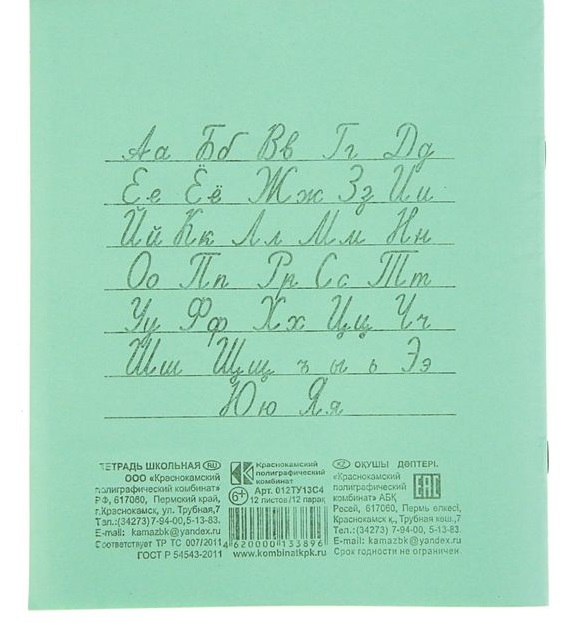 Аа Бб Вв Гг Дд
Ее Ёё Жж Зз Ии
Йй Кк Лл Мм Нн
Оо Пп Рр Сс Тт
Уу Фф Хх Цц Чч
Шш Щщ ъ ы ь Ээ
Юю Яя
ТЕТРАДЬ ШКОЛЬНАЯ RU
ООО «Краснокамский
полиграфический комбинат»
РФ, 617060, Пермский край,
г.Краснокамск, ул. Трубная,7
Тел.:(34273) 7-94-00,5-13-83.
E-mail: kamazbk@yandex.ru
Соответствует ТР ТС 007/2011
ГОСТ Р 54543-2011
Краснокамский
полиграфический
комбинат
6+ Арт. 012ТУ13С4
12 листов/12 парақ
4620000133896
www.kombinatkpk.ru
KZ ОҚУШЫ ДӘПТЕРІ.
«Краснокамский
полиграфический
комбинат» АБҚ
EAC
Ресей, 617060, Пермь өлкесі,
Краснокамск қ., Трубная көш.,7
Тел.: (34273) 7-94-00, 5-13-83.
E-mail: kamazbk@yandex.ru
Срок годности не ограничен.